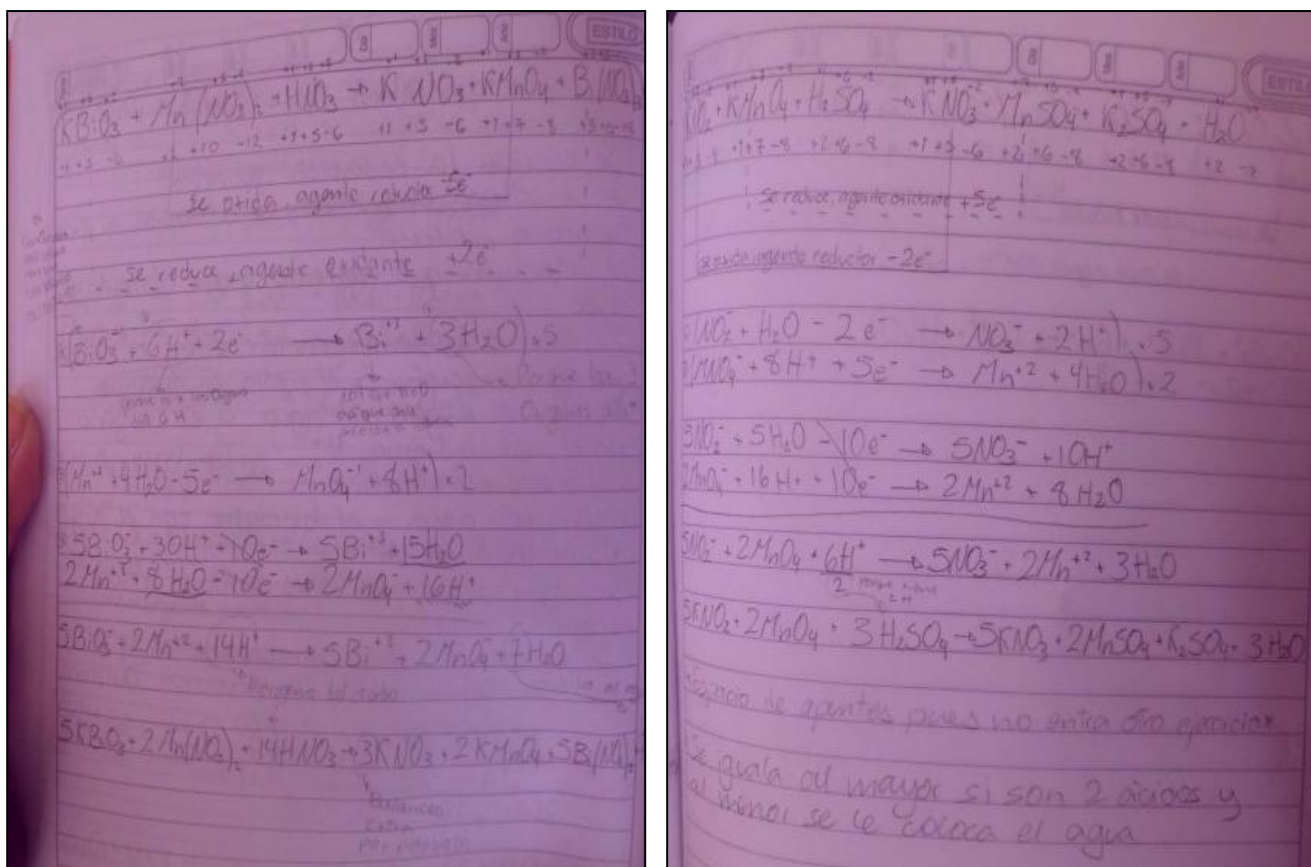 ESTILO
KBiO3 + Mn(NO3)2 + HNO3 → KNO3 + KMnO4 + Bi(NO3)3
+1 +5 -6 +2 +10 -12 +1 +5 -6 +1 +5 -6 +1 +7 -8
se oxida agente -5e-
se reduce, agente oxidante +2e-
(BiO3- + 6H+ + 2e- → Bi+3 + 3H2O) . 5
Porque hay 3
(Mn+2 + 4H2O - 5e- → MnO4-1 + 8H+) . 2
5BiO3- + 30H+ + 10e- → 5Bi+3 + 15H2O
2Mn+2 + 8H2O - 10e- → 2MnO4- + 16H+
5BiO3- + 2Mn+2 + 14H+ → 5Bi+3 + 2MnO4- + 7H2O
5KBiO3 + 2Mn(NO3)2 + 14HNO3 → 3KNO3 + 2KMnO4 + 5Bi(NO3)3
KNO2 + KMnO4 + H2SO4 → KNO3 + MnSO4 + K2SO4 + H2O
+1 +7 -8 +2 +6 -8 +1 +5 -6 +2 +6 -8 +2 +6 -8 +2 -2
se reduce, agente oxidante +5e-
se oxida, agente reductor -2e-
(NO2- + H2O - 2e- → NO3- + 2H+) . 5
(MnO4- + 8H+ + 5e- → Mn+2 + 4H2O) . 2
5NO2- + 5H2O - 10e- → 5NO3- + 10H+
2MnO4- + 16H+ + 10e- → 2Mn+2 + 8H2O
5NO2- + 2MnO4 + 6H+ → 5NO3- + 2Mn+2 + 3H2O
2
5KNO2 + 2MnO4 + 3H2SO4 → 5KNO3 + 2MnSO4 + K2SO4 + 3H2O
Espacio de apuntes pues no entra otro ejercicio
Se iguala al mayor si son 2 ácidos y
al menor se le coloca el agua